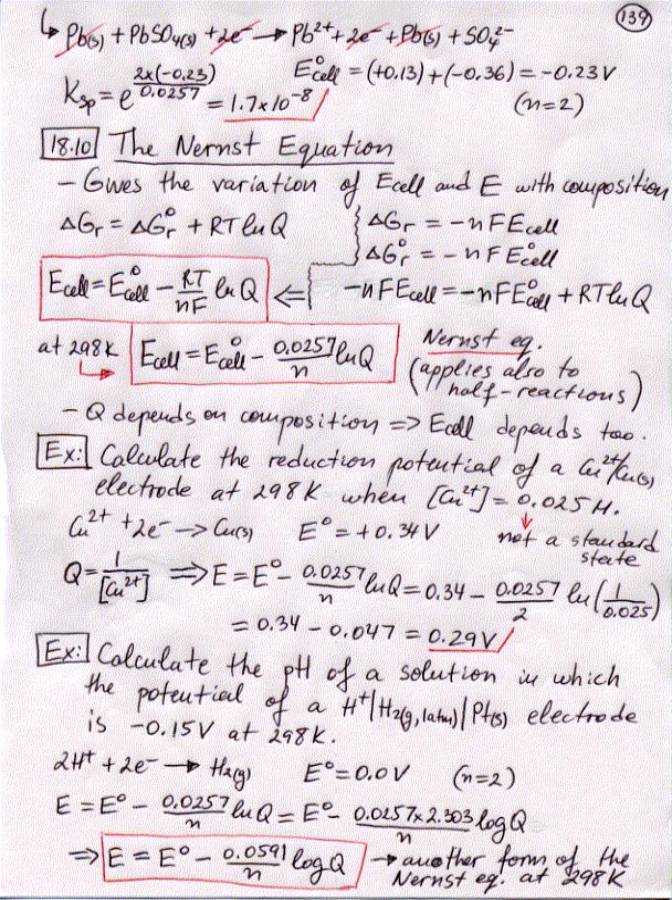 139
↳ Pb(s) + PbSO4(s) + 2e⁻ → Pb²⁺ + 2e⁻ + Pb(s) + SO4²⁻
Ksp = e^(2x(-0.23)/0.0257) = 1.7x10⁻⁸ E°cell = (+0.13)+(-0.36) = -0.23V
(n=2)
18.10 The Nernst Equation
- Gives the variation of Ecell and E with composition
ΔGr = ΔGr° + RT ln Q { ΔGr = -nFEcell
ΔGr° = -nFE°cell
Ecell = E°cell - RT/nF ln Q ⇐ -nFEcell = -nFE°cell + RT ln Q
at 298K → Ecell = E°cell - 0.0257/n ln Q Nernst eq.
(applies also to
half-reactions)
- Q depends on composition => Ecell depends too.
Ex: Calculate the reduction potential of a Cu²⁺/Cu(s)
electrode at 298K when [Cu²⁺] = 0.025 M.
Cu²⁺ + 2e⁻ → Cu(s) E° = +0.34V not a standard
state
Q = 1/[Cu²⁺] ⇒ E = E° - 0.0257/n ln Q = 0.34 - 0.0257/2 ln(1/0.025)
= 0.34 - 0.047 = 0.29V
Ex: Calculate the pH of a solution in which
the potential of a H⁺|H2(g,1atm)|Pt(s) electrode
is -0.15V at 298K.
2H⁺ + 2e⁻ → H2(g) E° = 0.0V (n=2)
E = E° - 0.0257/n ln Q = E° - 0.0257x2.303/n log Q
⇒ E = E° - 0.0591/n log Q → another form of the
Nernst eq. at 298K